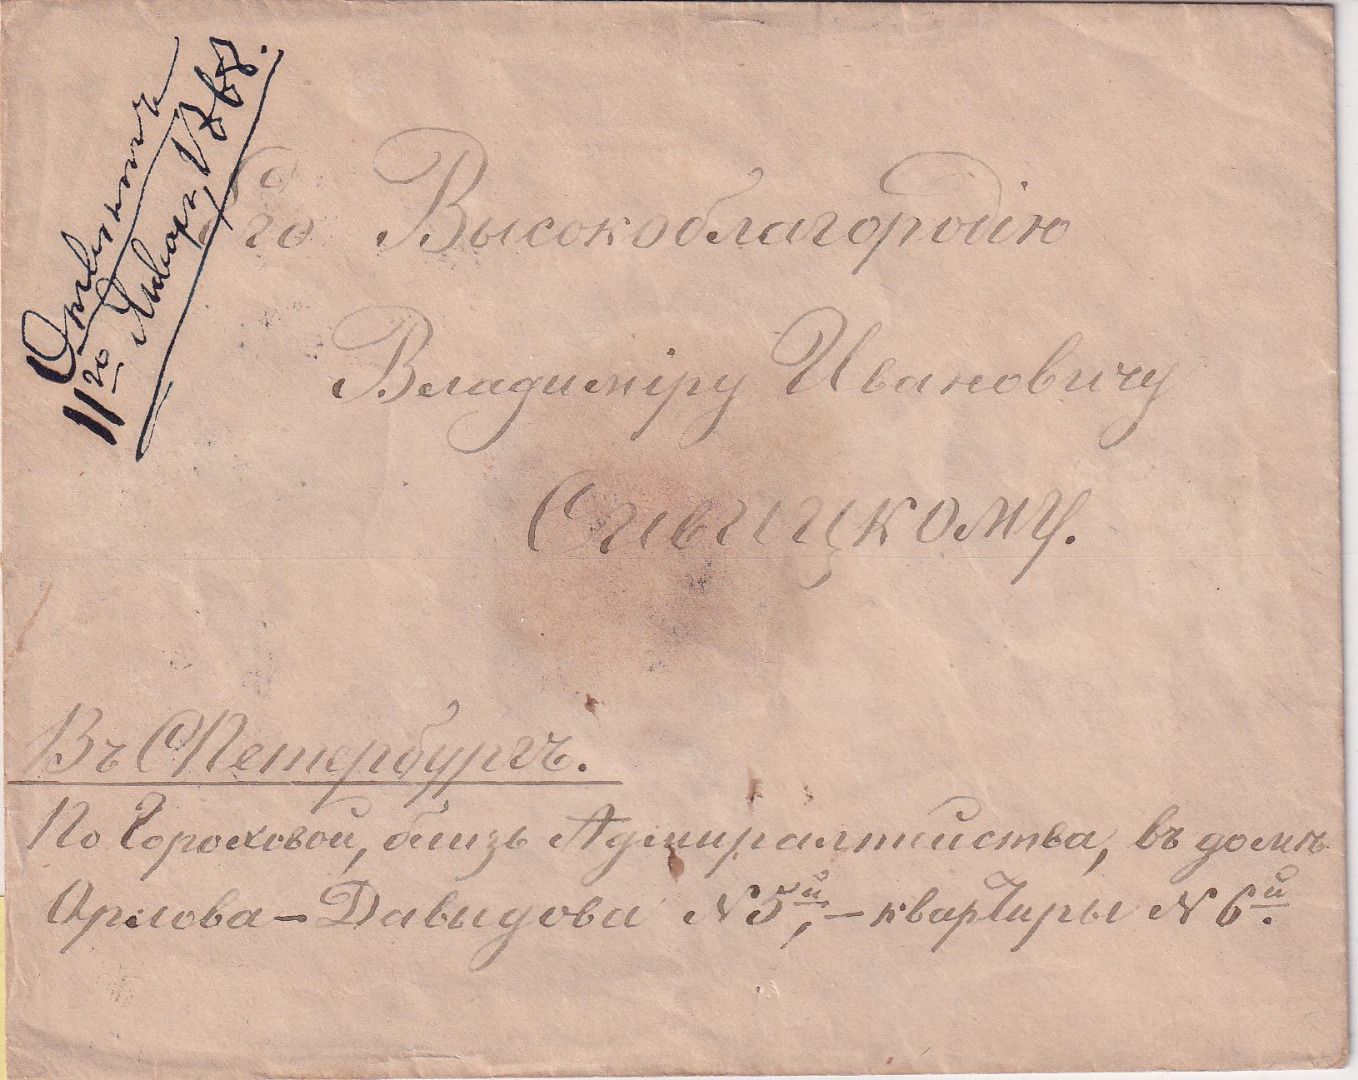 Отвѣтить
11го Января 1868.
Его Высокоблагородію
Владиміру Ивановичу
Сивицкому.
Въ СПетербургъ.
По Гороховой, близь Адмиралтейства, въ домѣ
Орлова-Давыдова №5й,-квартиры №6й.